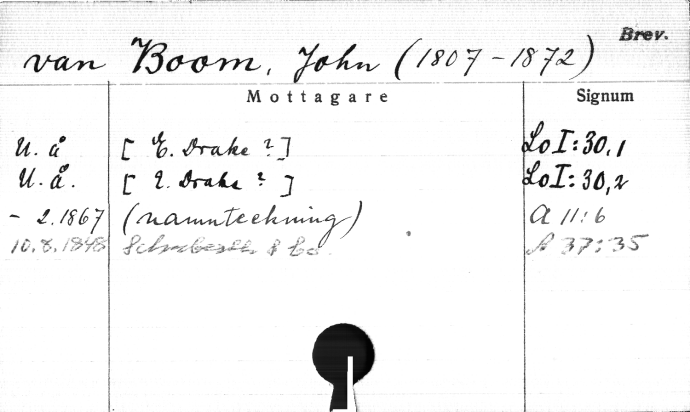 Brev.
van Boom, John (1807-1872)
Mottagare Signum
U. å [ E. Drake ? ] LoI:30,1
U. å. [ E. Drake ? ] LoI:30,2
- 2.1867 (namnteckning) A 11:6
10.8.1848 & Co. A 37:35